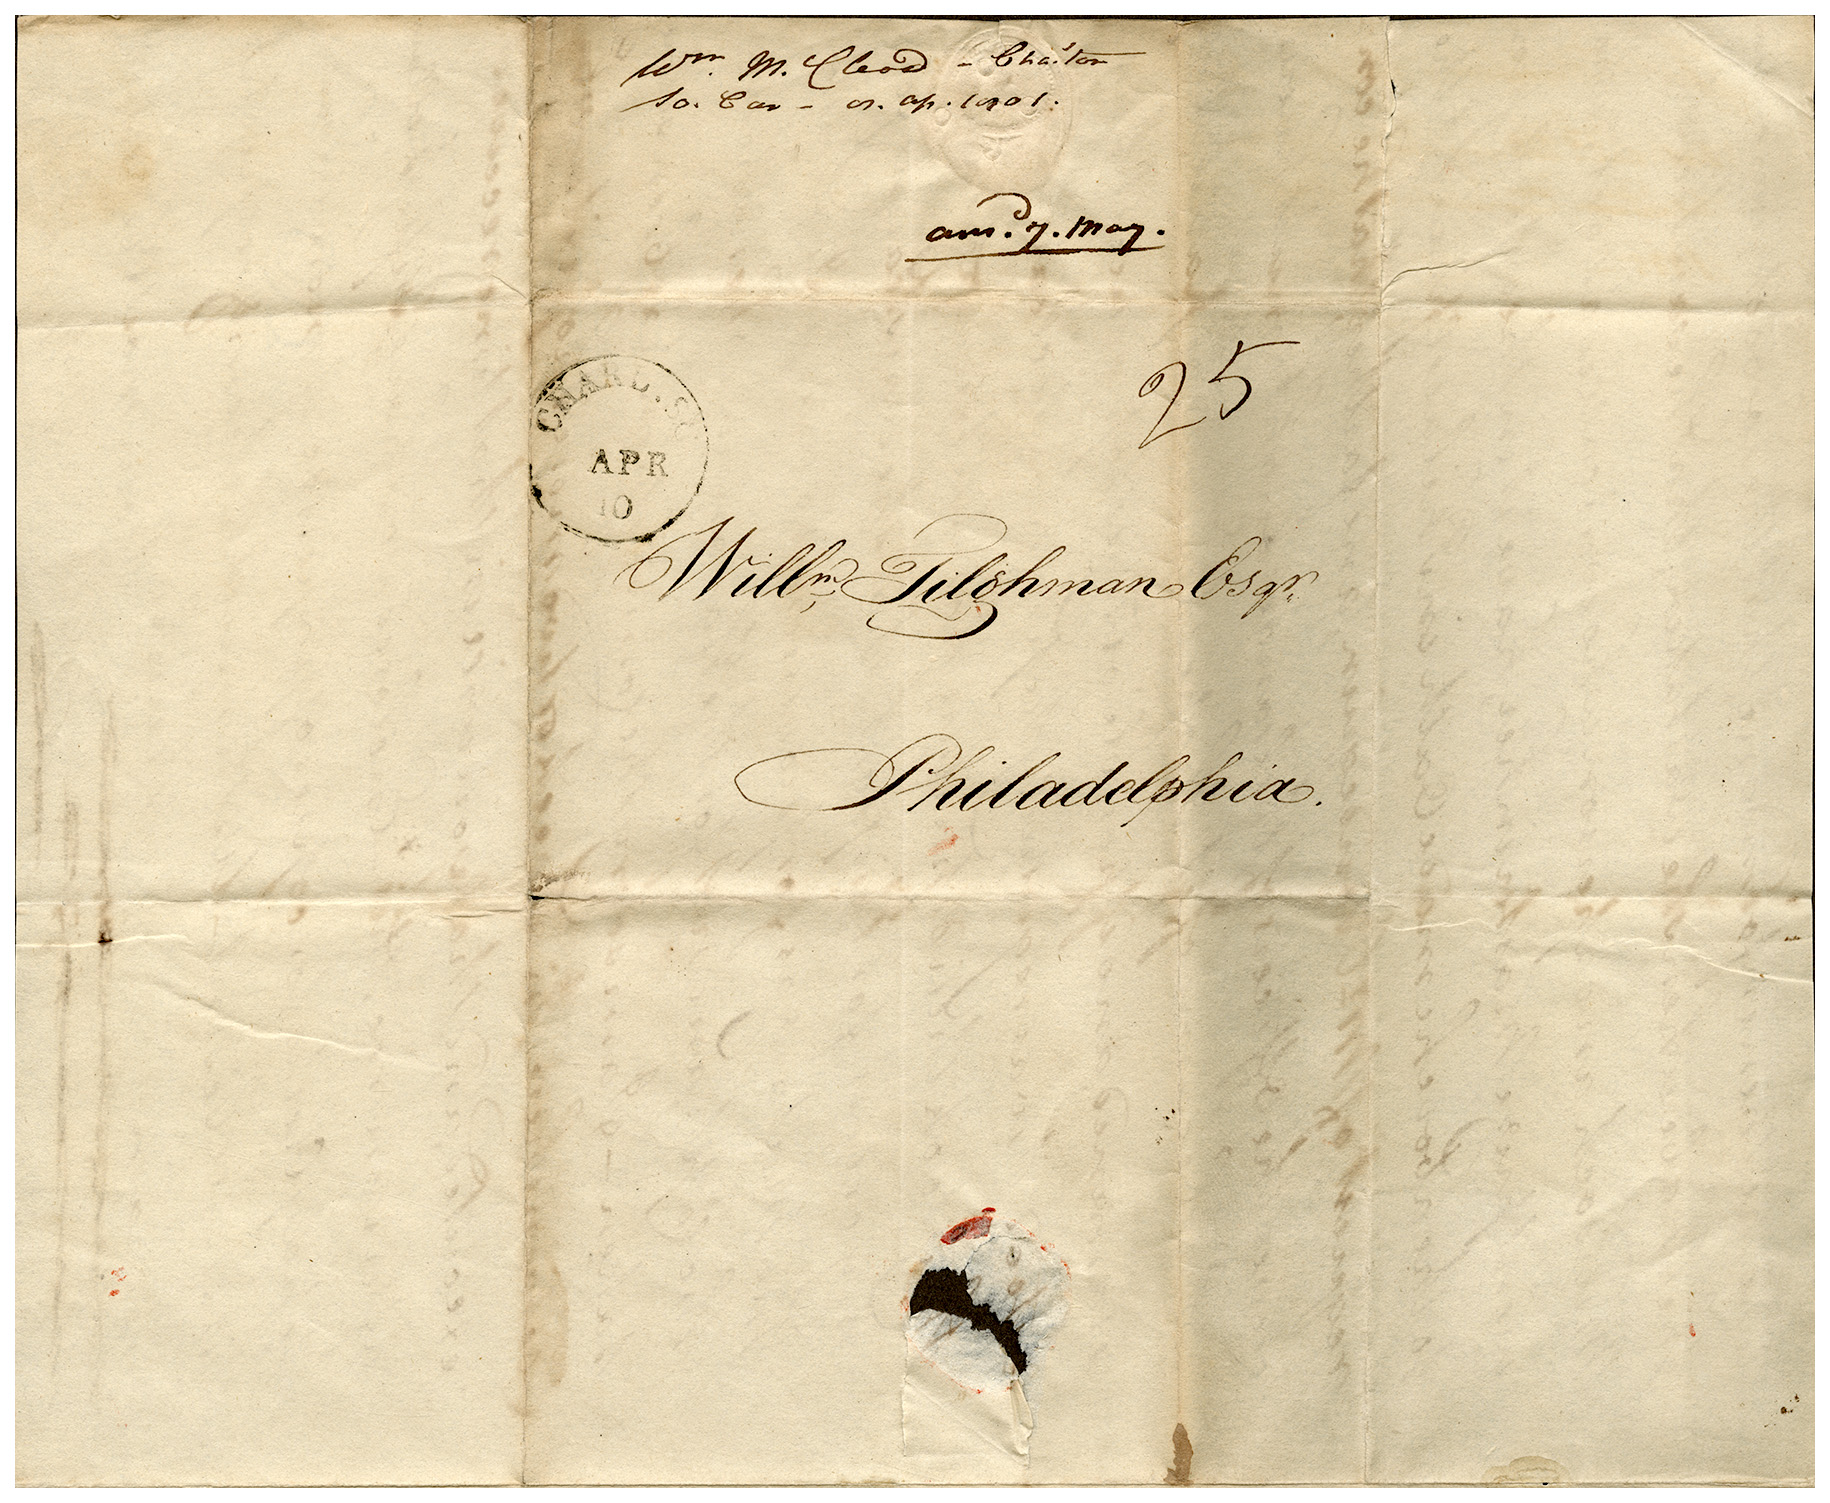 Wm. M. Cleod - Cha'ston
So. Car - 9. Ap. 1801.
ansd. 7. May.
25
CHARL. SC
APR
10
Willm. Tilghman Esqr.
Philadelphia.